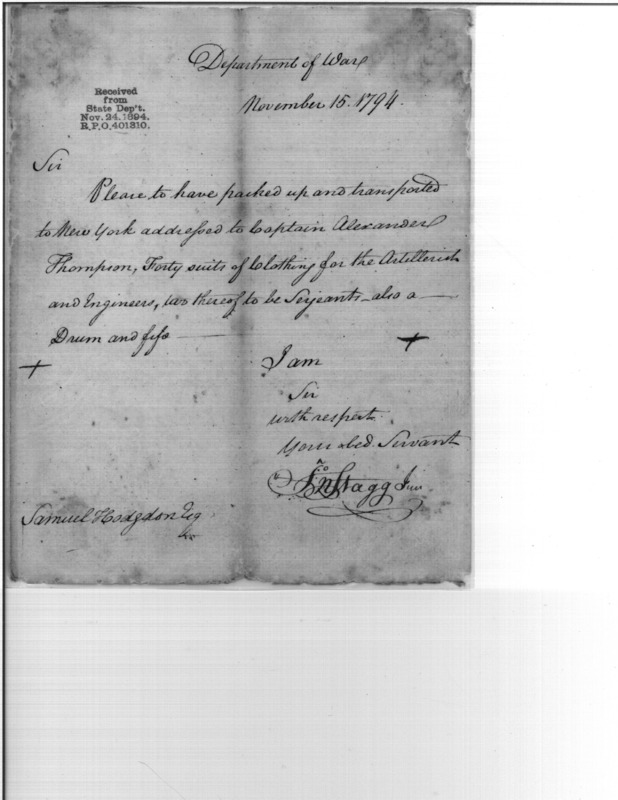 Department of War
November 15. 1794.
Received
from
State Dep't.
Nov. 24. 1894.
R.P.O. 401310.
Sir
Please to have packed up and transported
to New York addressed to Captain Alexander
Thompson, Forty suits of Clothing for the Artillerists
and Engineers, two thereof to be Serjeants - also a
Drum and fife
I am
Sir
with respect
Your obed. Servant
Jno Stagg Junr
Samuel Hodgdon Esq